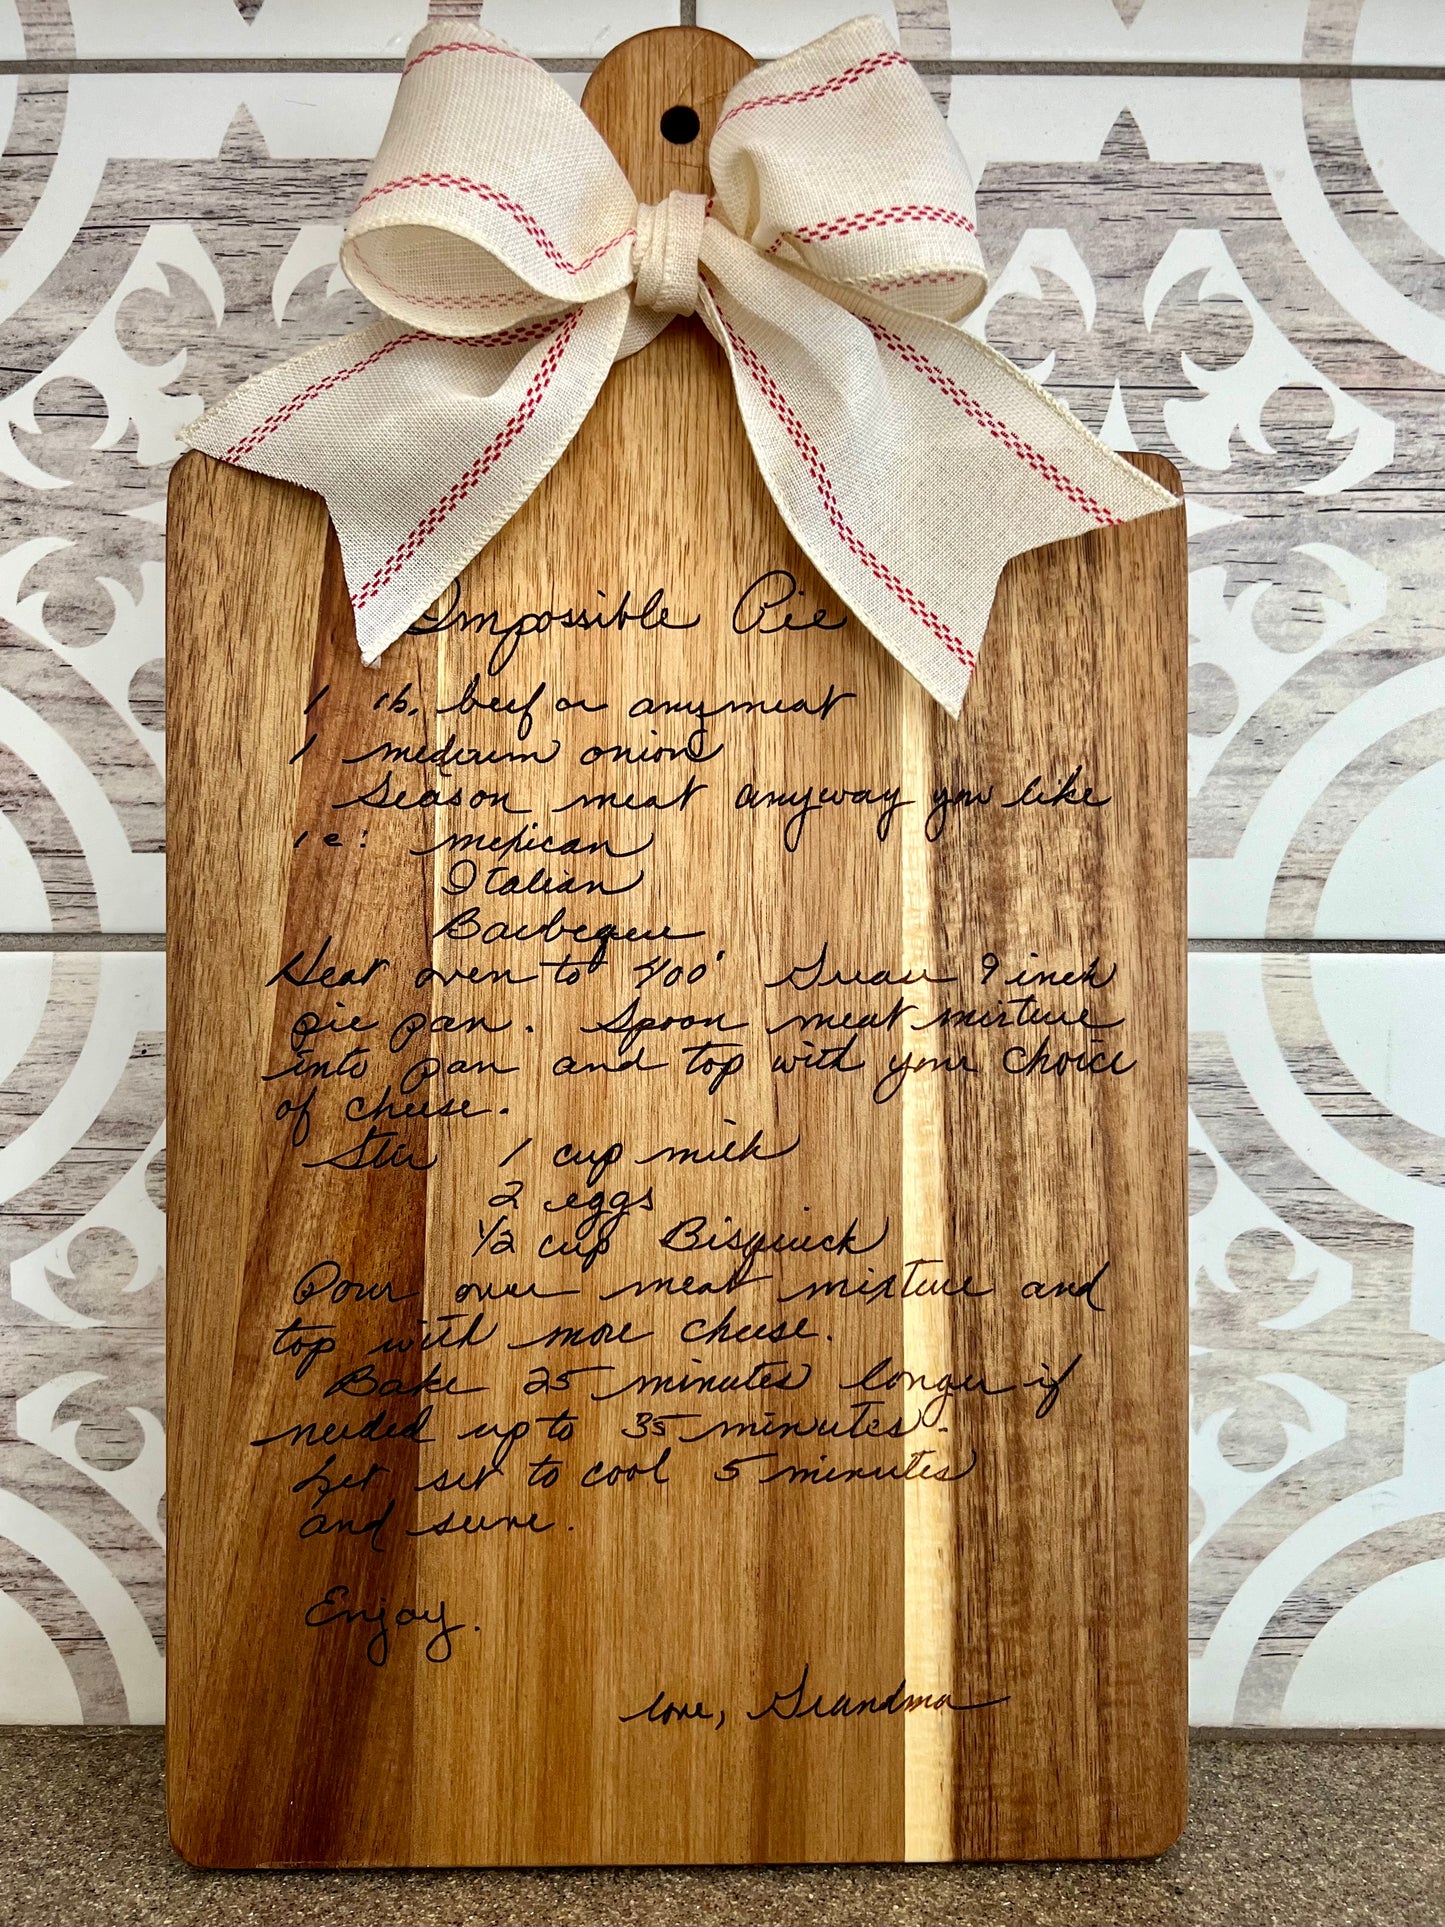 Impossible Pie
1 lb. beef or any meat
1 medium onion
Season meat anyway you like
ie: mexican
Italian
Barbeque
Heat oven to 400° Grease 9 inch
pie pan. Spoon meat mixture
into pan and top with your choice
of cheese.
Stir 1 cup milk
2 eggs
1/2 cup Bisquick
Pour over meat mixture and
top with more cheese.
Bake 25 minutes longer if
needed up to 35 minutes.
Let set to cool 5 minutes
and serve.
Enjoy.
love, Grandma